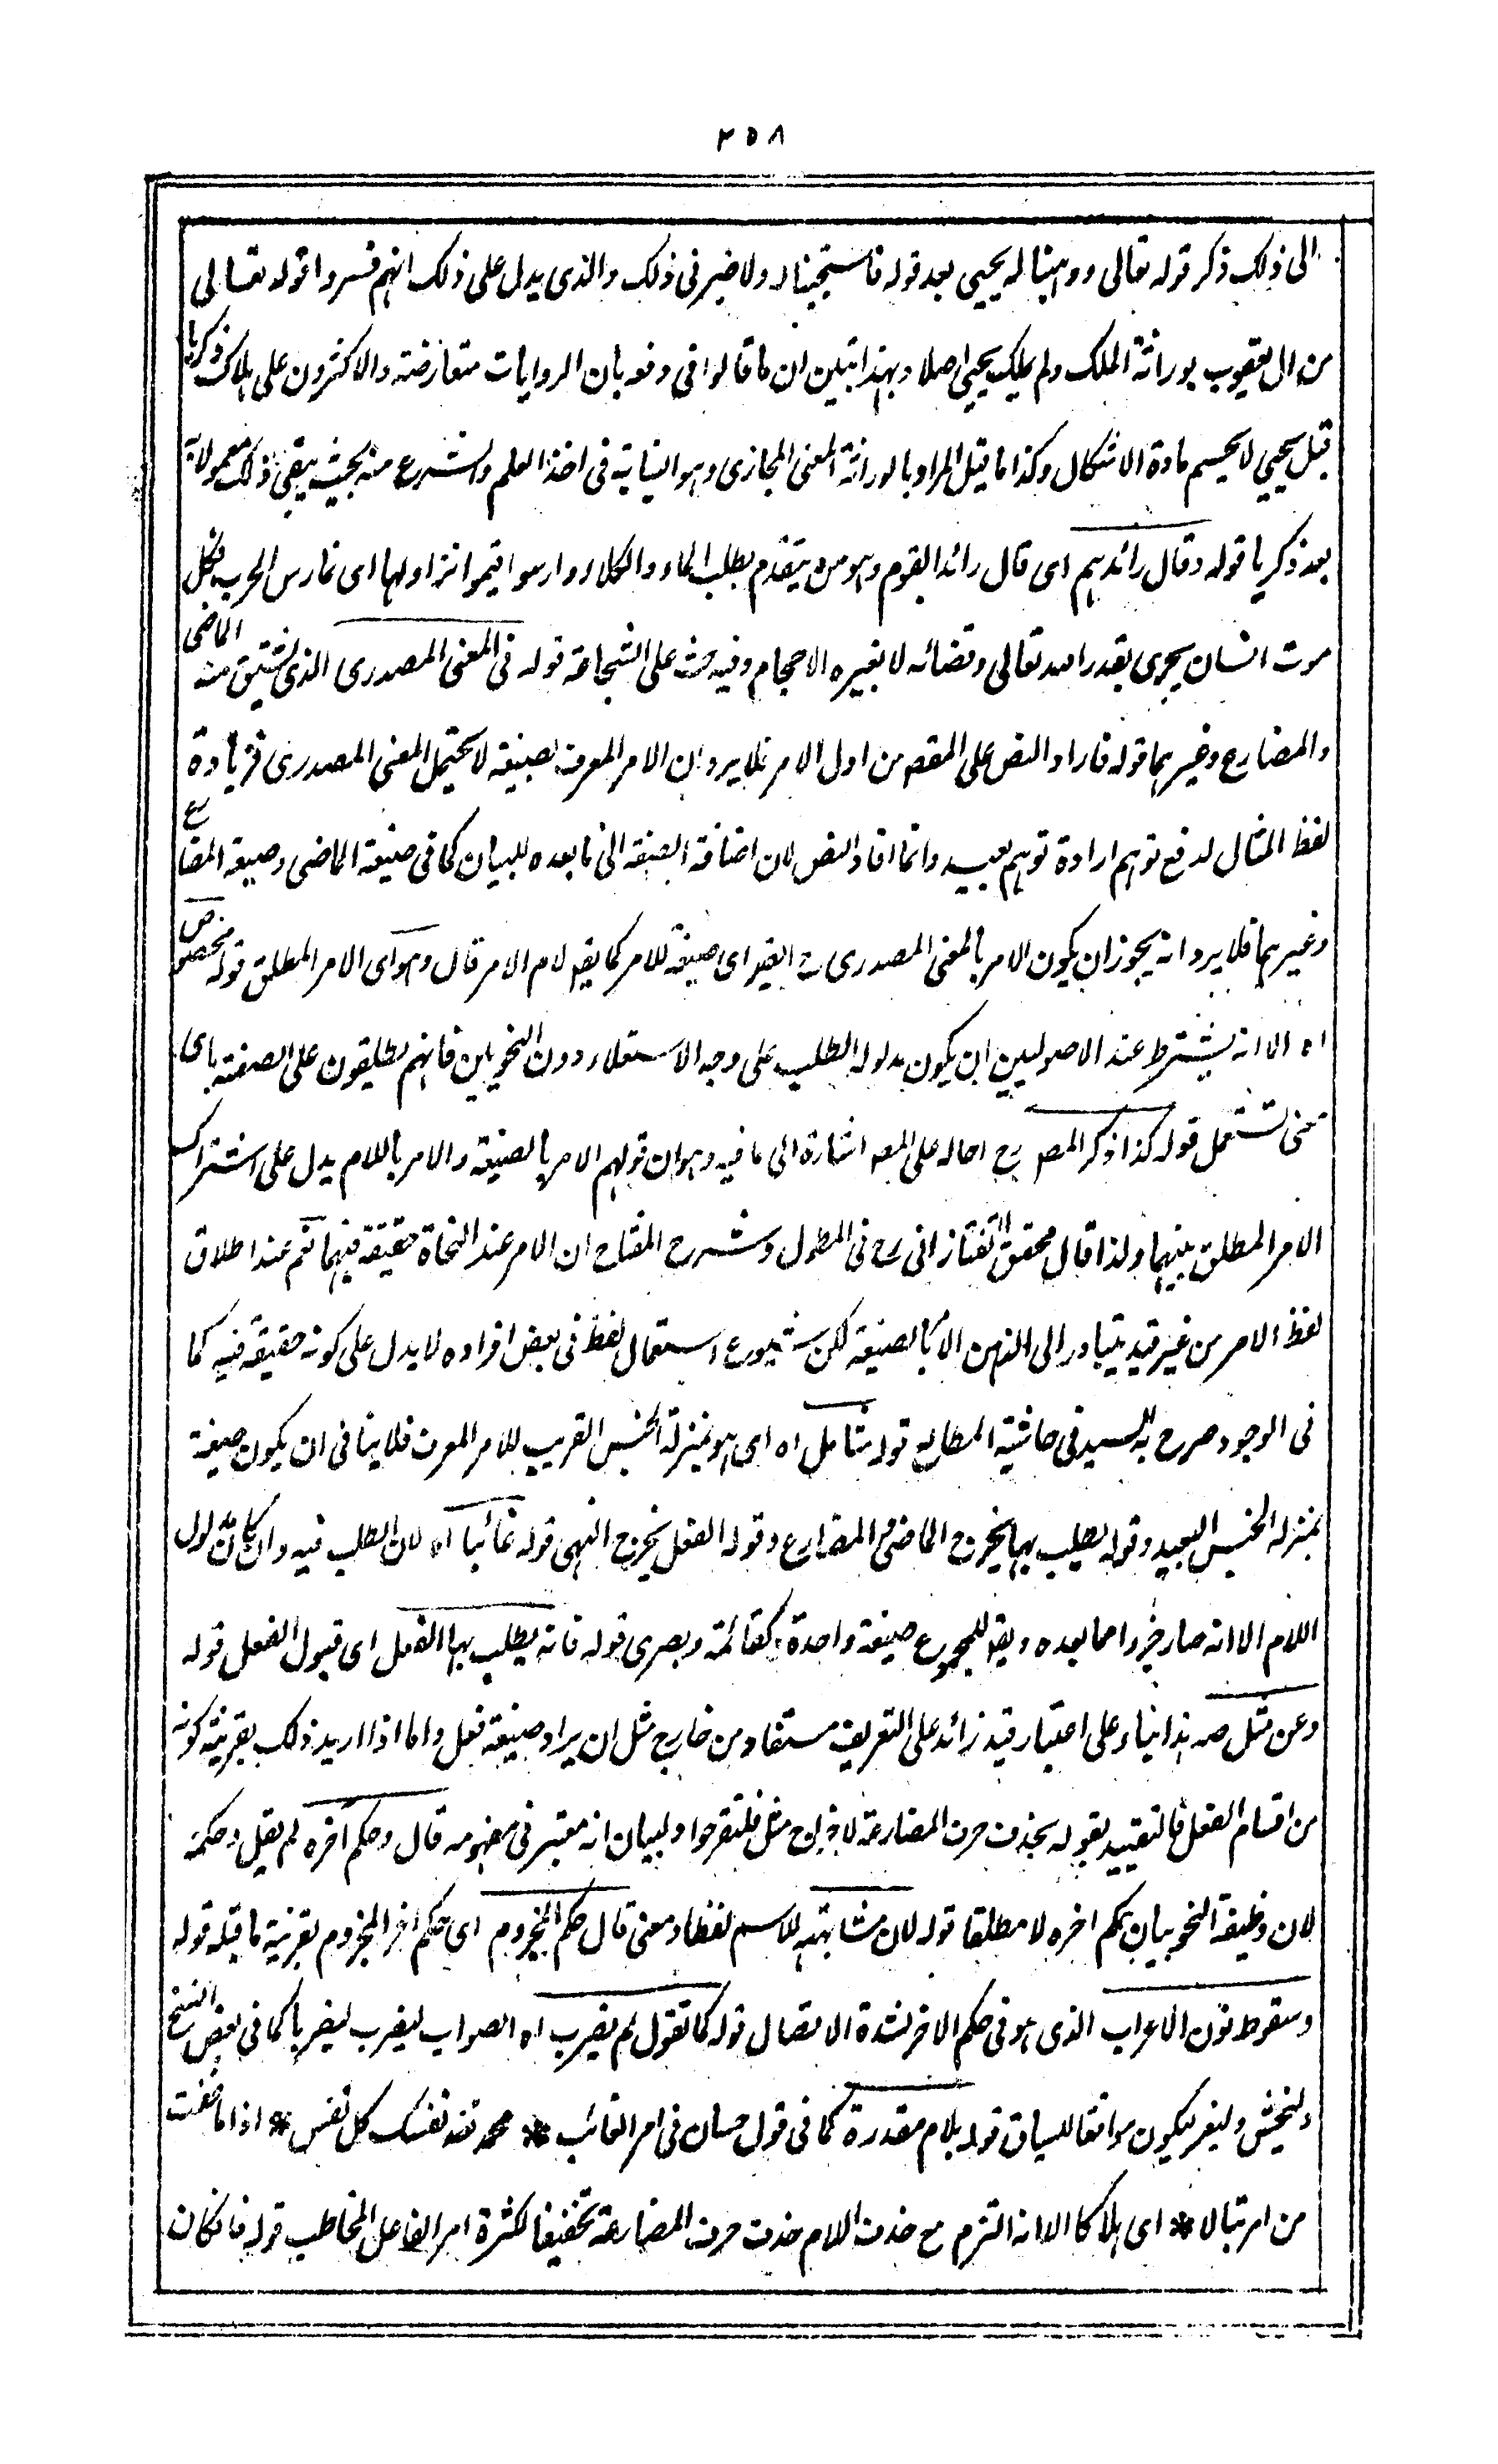 ٢٥٨
الى ذلك ذكر قوله تعالى ووهبنا له يحيى بعد قوله فاستجبنا له ولا ضير فى ذلك والذى يدل على ذلك انهم فسروا قوله تعالى
من ال يعقوب بوراثة الملك ولم يملك يحيى اصلا وبهذا تبين ان ما قالوا فى دفعه بان الروايات متعارضة والاكثرون على هلاك زكريا
قبل يحيى لا يحسم مادة الاشكال وكذا ما قيل المراد بالوراثة المعنى المجازى وهو النيابة فى اخذ العلم والشرع منه بحيث يبقى ذلك معمولا به
بعد زكريا قوله وقال رائدهم اى قال رائد القوم وهو من يتقدم بطلب الماء والكلاء وارسوا اقيموا نزاولها اى نمارس الحرب فكل
موت انسان يجرى بقدر الله تعالى وقضائه لا بغيره الاحجام وفيه حث على الشجاعة قوله فى المعنى المصدرى الذى يشتق منه الماضى
والمضارع وغيرهما قوله فاراد النص على المقصه من اول الامر فلا يرد ان الامر المعرف بصيغة لا يحتمل المعنى المصدرى فزيادة
لفظ المثال لدفع توهم ارادة توهم بعيد وانما افاد النص لان اضافة الصيغة الى ما بعده للبيان كما فى صيغة الماضى وصيغة المضارع
وغيرهما فلا يرد انه يجوز ان يكون الامر بالمعنى المصدرى ح ايضا اى صيغة للامر كما يقه لام الامر قال وهو اى الامر المطلق قوله مخصوص
اه الا انه يشترط عند الاصوليين ان يكون مدلوله الطلب على وجه الاستعلاء دون النحويين فانهم يطلقون على الصيغة باى
معنى تستعمل قوله كذا ذكر المصه رح احاله على المصه اشارة الى ما فيه وهو ان قولهم الامر بالصيغة والامر باللام يدل على اشتراك
الامر المطلق بينهما ولذا قال محقق التفتازانى رح فى المطول وشرح المفتاح ان الامر عند النحاة حقيقة فيهما نعم عند اطلاق
لفظ الامر من غير قيد يتبادر الى الذهن الامر بالصيغة لكن شيوع استعمال لفظ فى بعض افراده لا يدل على كونه حقيقة فيه كما
فى الوجود صرح به السيد فى حاشية المطالع قوله شامل اه اى هو بمنزلة الجنس القريب للامر المعرف فلا ينافى ان يكون صيغة
بمنزلة الجنس البعيد وقوله يطلب بها يخرج الماضى والمضارع وقوله الفعل يخرج النهى قوله غائبا اه لان الطلب فيه وان كان مدلول
اللام الا انه صار جزوا مما بعده ويقه للمجموع صيغة واحدة كقائمة وبصرى قوله فانه يطلب بها الفعل اى قبول الفعل قوله
وعن مثل صه هذا بناء على اعتبار قيد زائد على التعريف مستفاد من خارج مثل ان يراد صيغة فعل واما اذا اريد ذلك بقرينة كونه
من اقسام الفعل فالتقييد بقوله بحذف حرف المضارعة لاخراج مثل فلتفرحوا ولبيان انه معتبر فى مفهومه قال وحكم اخره لم يقل وحكمه
لان وظيفة النحو بيان حكم اخره لا مطلقا قوله لان مشابهته للاسم لفظا ومعنى قال حكم المجزوم اى حكم اخر المجزوم بقرينة ما قبله قوله
وسقوط نون الاعراب الذى هو فى حكم الاخر لشدة الاتصال قوله كما تقول لم يضرب اه الصواب ليضرب ليضربا كما فى بعض النسخ
وليخش وليغز ليكون موافقا للسياق قوله بلام مقدرة كما فى قول حسان فى امر الغائب * محمد تفد نفسك كل نفس * اذا ما خفت
من امر تبالا * اى هلاكا الا انه التزم مع حذف اللام حذف حرف المضارعة تخفيفا لكثرة امر الفاعل المخاطب قوله فان كان